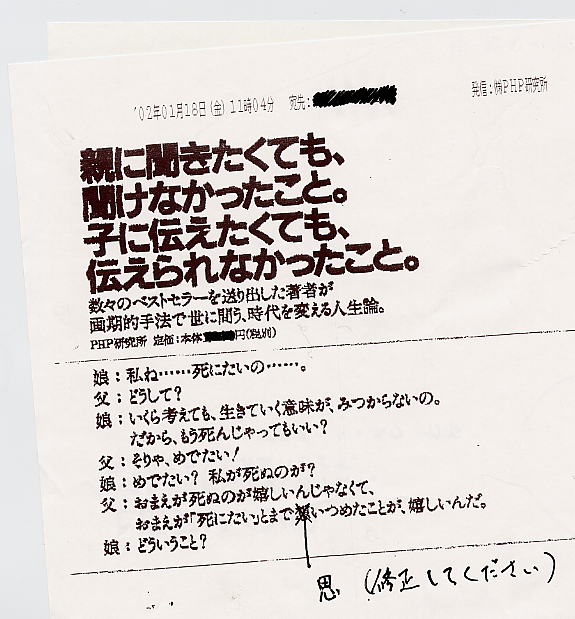 '02年01月18日(金) 11時04分 宛先:
発信:㈱PHP研究所
親に聞きたくても、
聞けなかったこと。
子に伝えたくても、
伝えられなかったこと。
数々のベストセラーを送り出した著者が
画期的手法で世に問う、時代を変える人生論。
PHP研究所 定価:本体 円(税別)
娘:私ね……死にたいの……。
父:どうして?
娘:いくら考えても、生きていく意味が、みつからないの。
だから、もう死んじゃってもいい?
父:そりゃ、めでたい!
娘:めでたい? 私が死ぬのが?
父:おまえが死ぬのが嬉しいんじゃなくて、
おまえが「死にたい」とまで いつめたことが、嬉しいんだ。
娘:どういうこと?
思 (修正してください)